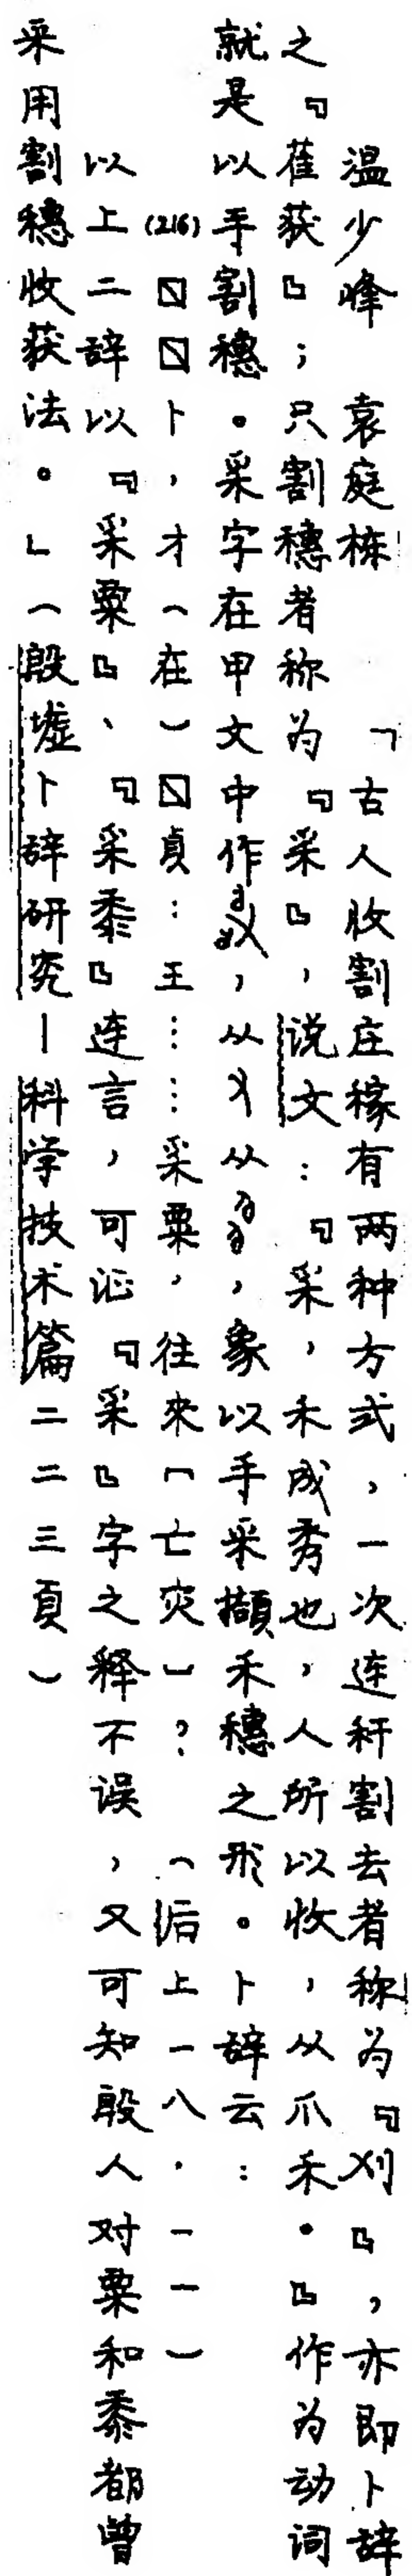 温少峰　袁庭栋　「古人收割庄稼有两种方式，一次连秆割去者称为『刈』，亦即卜辞
之『萑获』；只割穗者称为『采』，说文：『采，禾成秀也，人所以收，从爪禾。』作为动词
就是以手割穗。采字在甲文中作，从又从，象以手采撷禾穗之形。卜辞云：
(216)〼〼卜，才（在）〼貞：王……采粟，往來「亡灾」？（后上一八·一一）
以上二辞以『采粟』、『采黍』连言，可证『采』字之释不误，又可知殷人对粟和黍都曾
采用割穗收获法。」（殷墟卜辞研究—科学技术篇二二三頁）